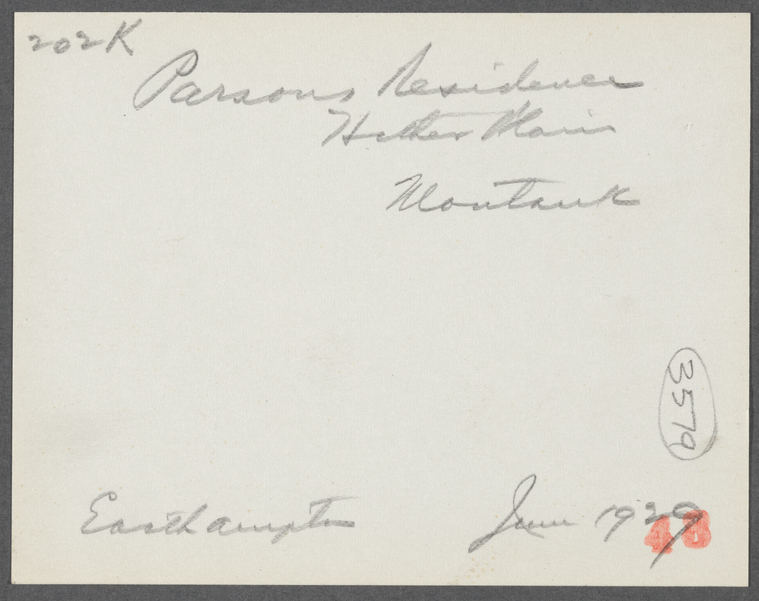 202K
Parsons Residence
Hither Plain
Montauk
3579
Easthampton June 1929
48